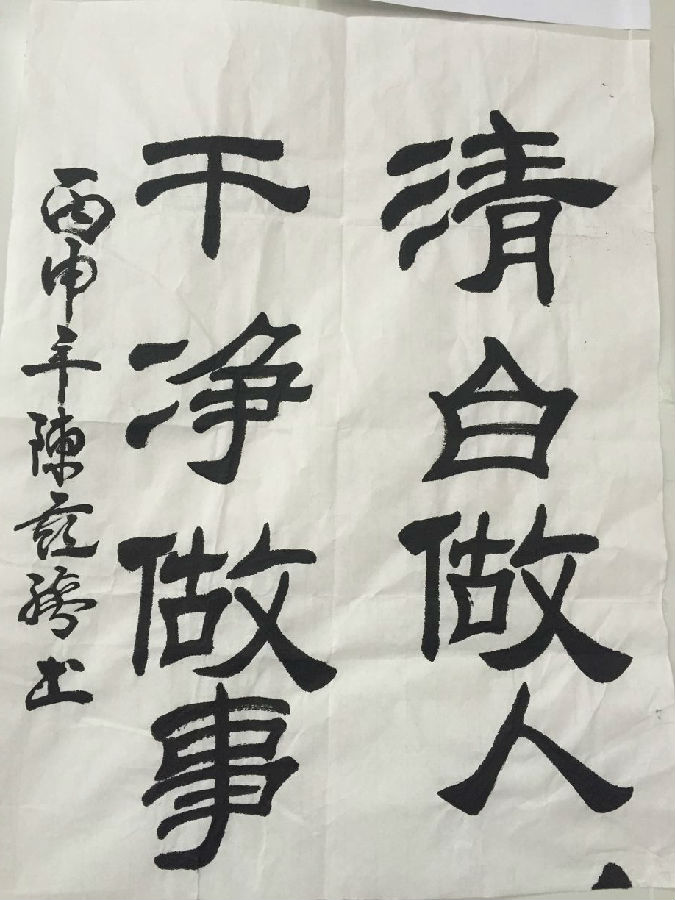 清白做人
干净做事
丙申年陳